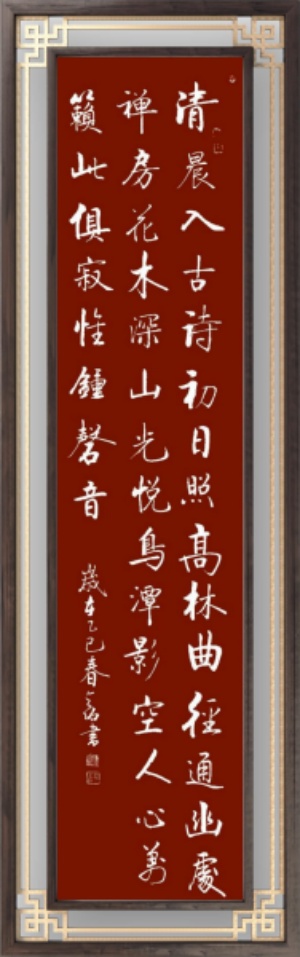 清晨入古诗初日照高林曲径通幽處
禅房花木深山光悦鳥潭影空人心萬
籟此俱寂惟鍾磬音
歲在乙巳春書